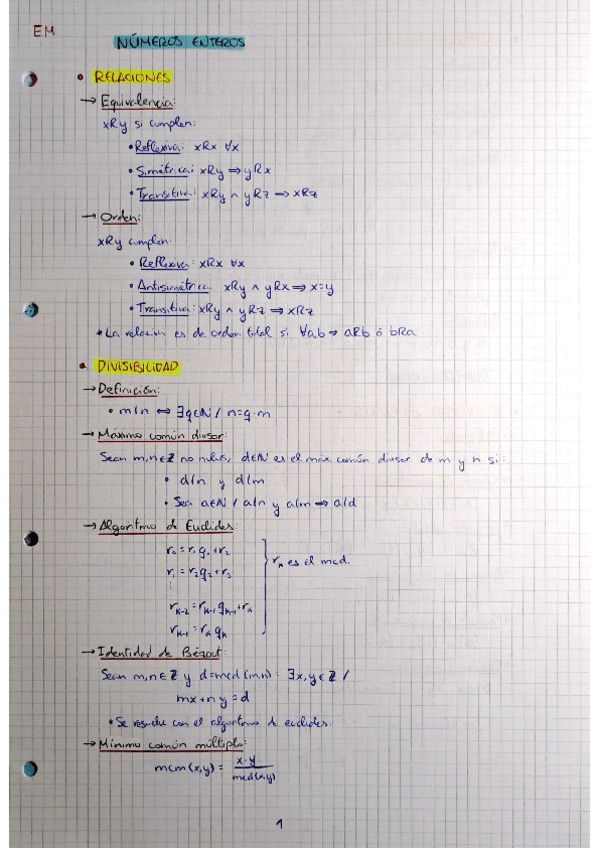 EM
NÚMEROS ENTEROS
• RELACIONES
→ Equivalencia:
xRy si cumplen:
• Reflexiva: xRx ∀x
• Simétrica: xRy ⇒ yRx
• Transitiva: xRy ∧ yRz ⇒ xRz
→ Orden:
xRy cumplen:
• Reflexiva: xRx ∀x
• Antisimétrica xRy ∧ yRx ⇒ x=y
• Transitiva: xRy ∧ yRz ⇒ xRz
• La relación es de orden total si ∀a,b ⇒ aRb ó bRa
• DIVISIBILIDAD
→ Definición:
• m/n ⇔ ∃q∈N / n=q·m
→ Máximo común divisor:
Sean m,n∈Z no nulos, d∈N es el máx común divisor de m y n si:
• d/n y d/m
• Sea a∈N / a/n y a/m ⇒ a/d
→ Algoritmo de Euclides:
r₀ = r₁q₁+r₂
r₁ = r₂q₂+r₃
⋮
rₖ₋₂ = rₖ₋₁qₖ₋₁+rₖ
rₖ₋₁ = rₖqₖ
rₖ es el mcd.
→ Identidad de Bézout:
Sean m,n∈Z y d=mcd(m,n): ∃x,y∈Z /
mx+ny=d
• Se resuelve con el algoritmo de euclides.
→ Mínimo común múltiplo:
mcm(x,y) = x·y / mcd(x,y)
1